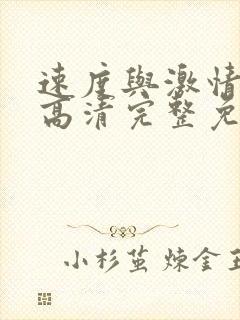 速度與激情
高清完整免
小杉茧煉金王